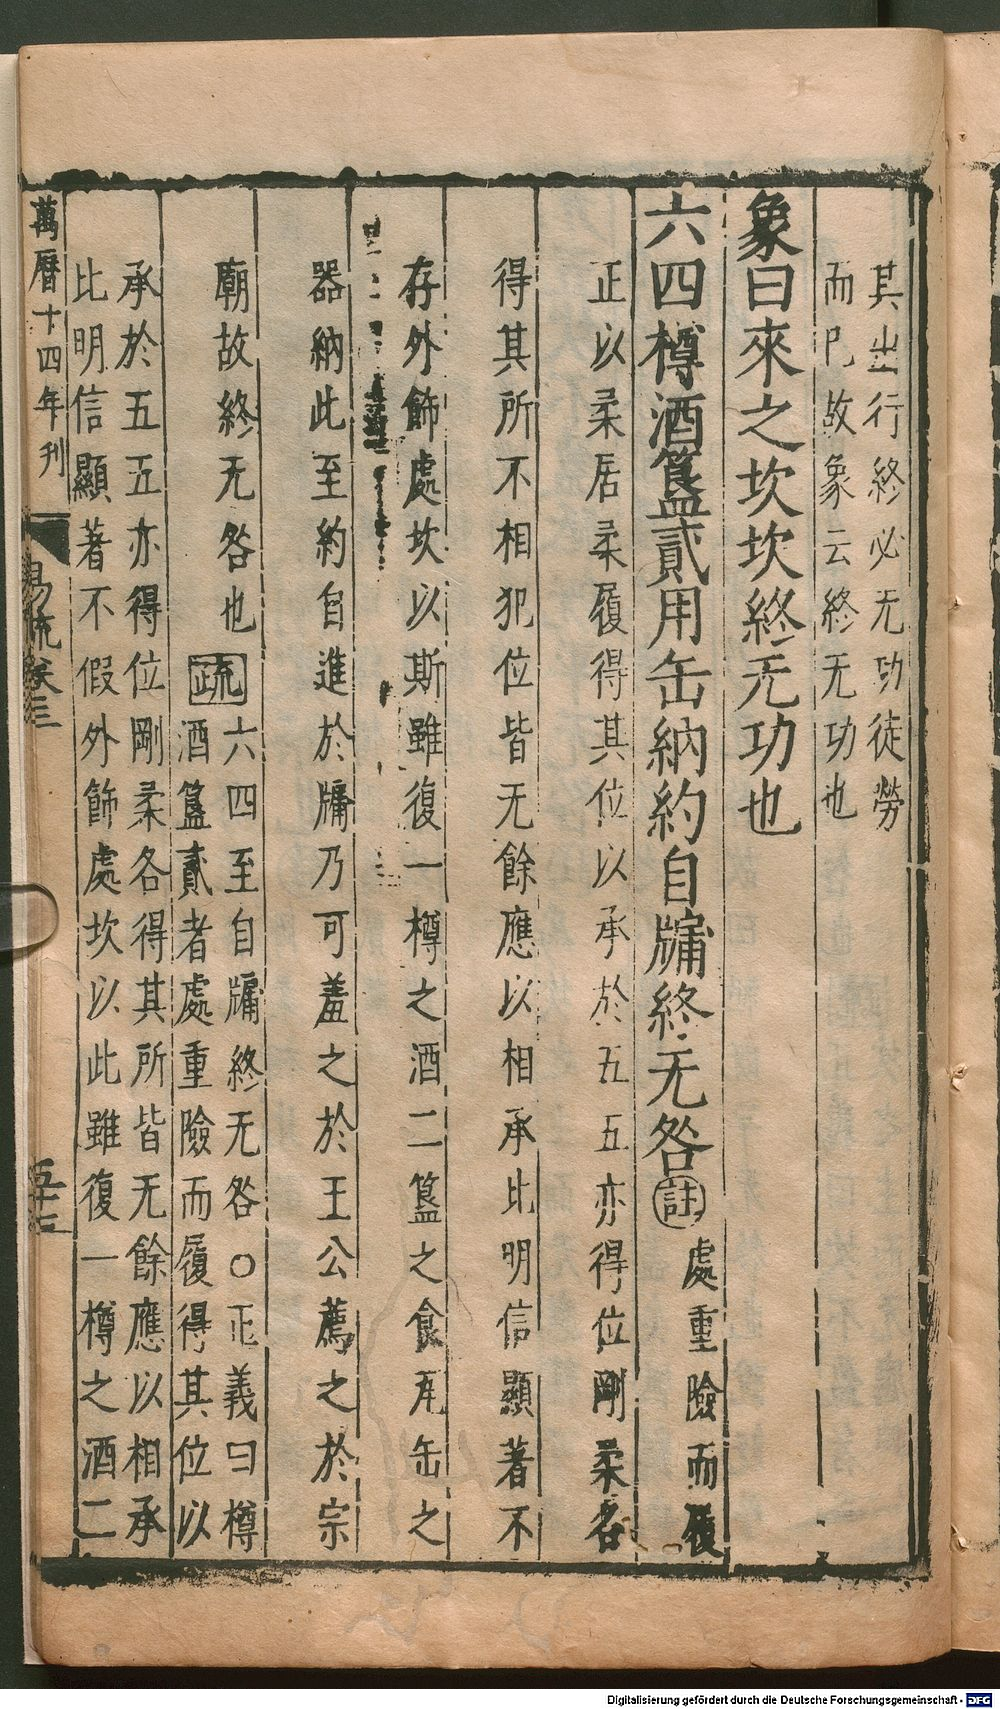 其出行終必无功徒勞
而已故象云終无功也
象曰來之坎坎終无功也
六四樽酒簋貳用缶納約自牖終无咎註處重險而履
正以柔居柔履得其位以承於五五亦得位剛柔各
得其所不相犯位皆无餘應以相承比明信顯著不
存外飾處坎以斯雖復一樽之酒二簋之食瓦缶之
器納此至約自進於牖乃可羞之於王公薦之於宗
廟故終无咎也疏
六四至自牖終无咎○正義曰樽
酒簋貳者處重險而履得其位以
承於五五亦得位剛柔各得其所皆无餘應以相承
比明信顯著不假外飾處坎以此雖復一樽之酒二
萬曆十四年刊
易疏卷三
五十七
Digitalisierung gefördert durch die Deutsche Forschungsgemeinschaft - DFG